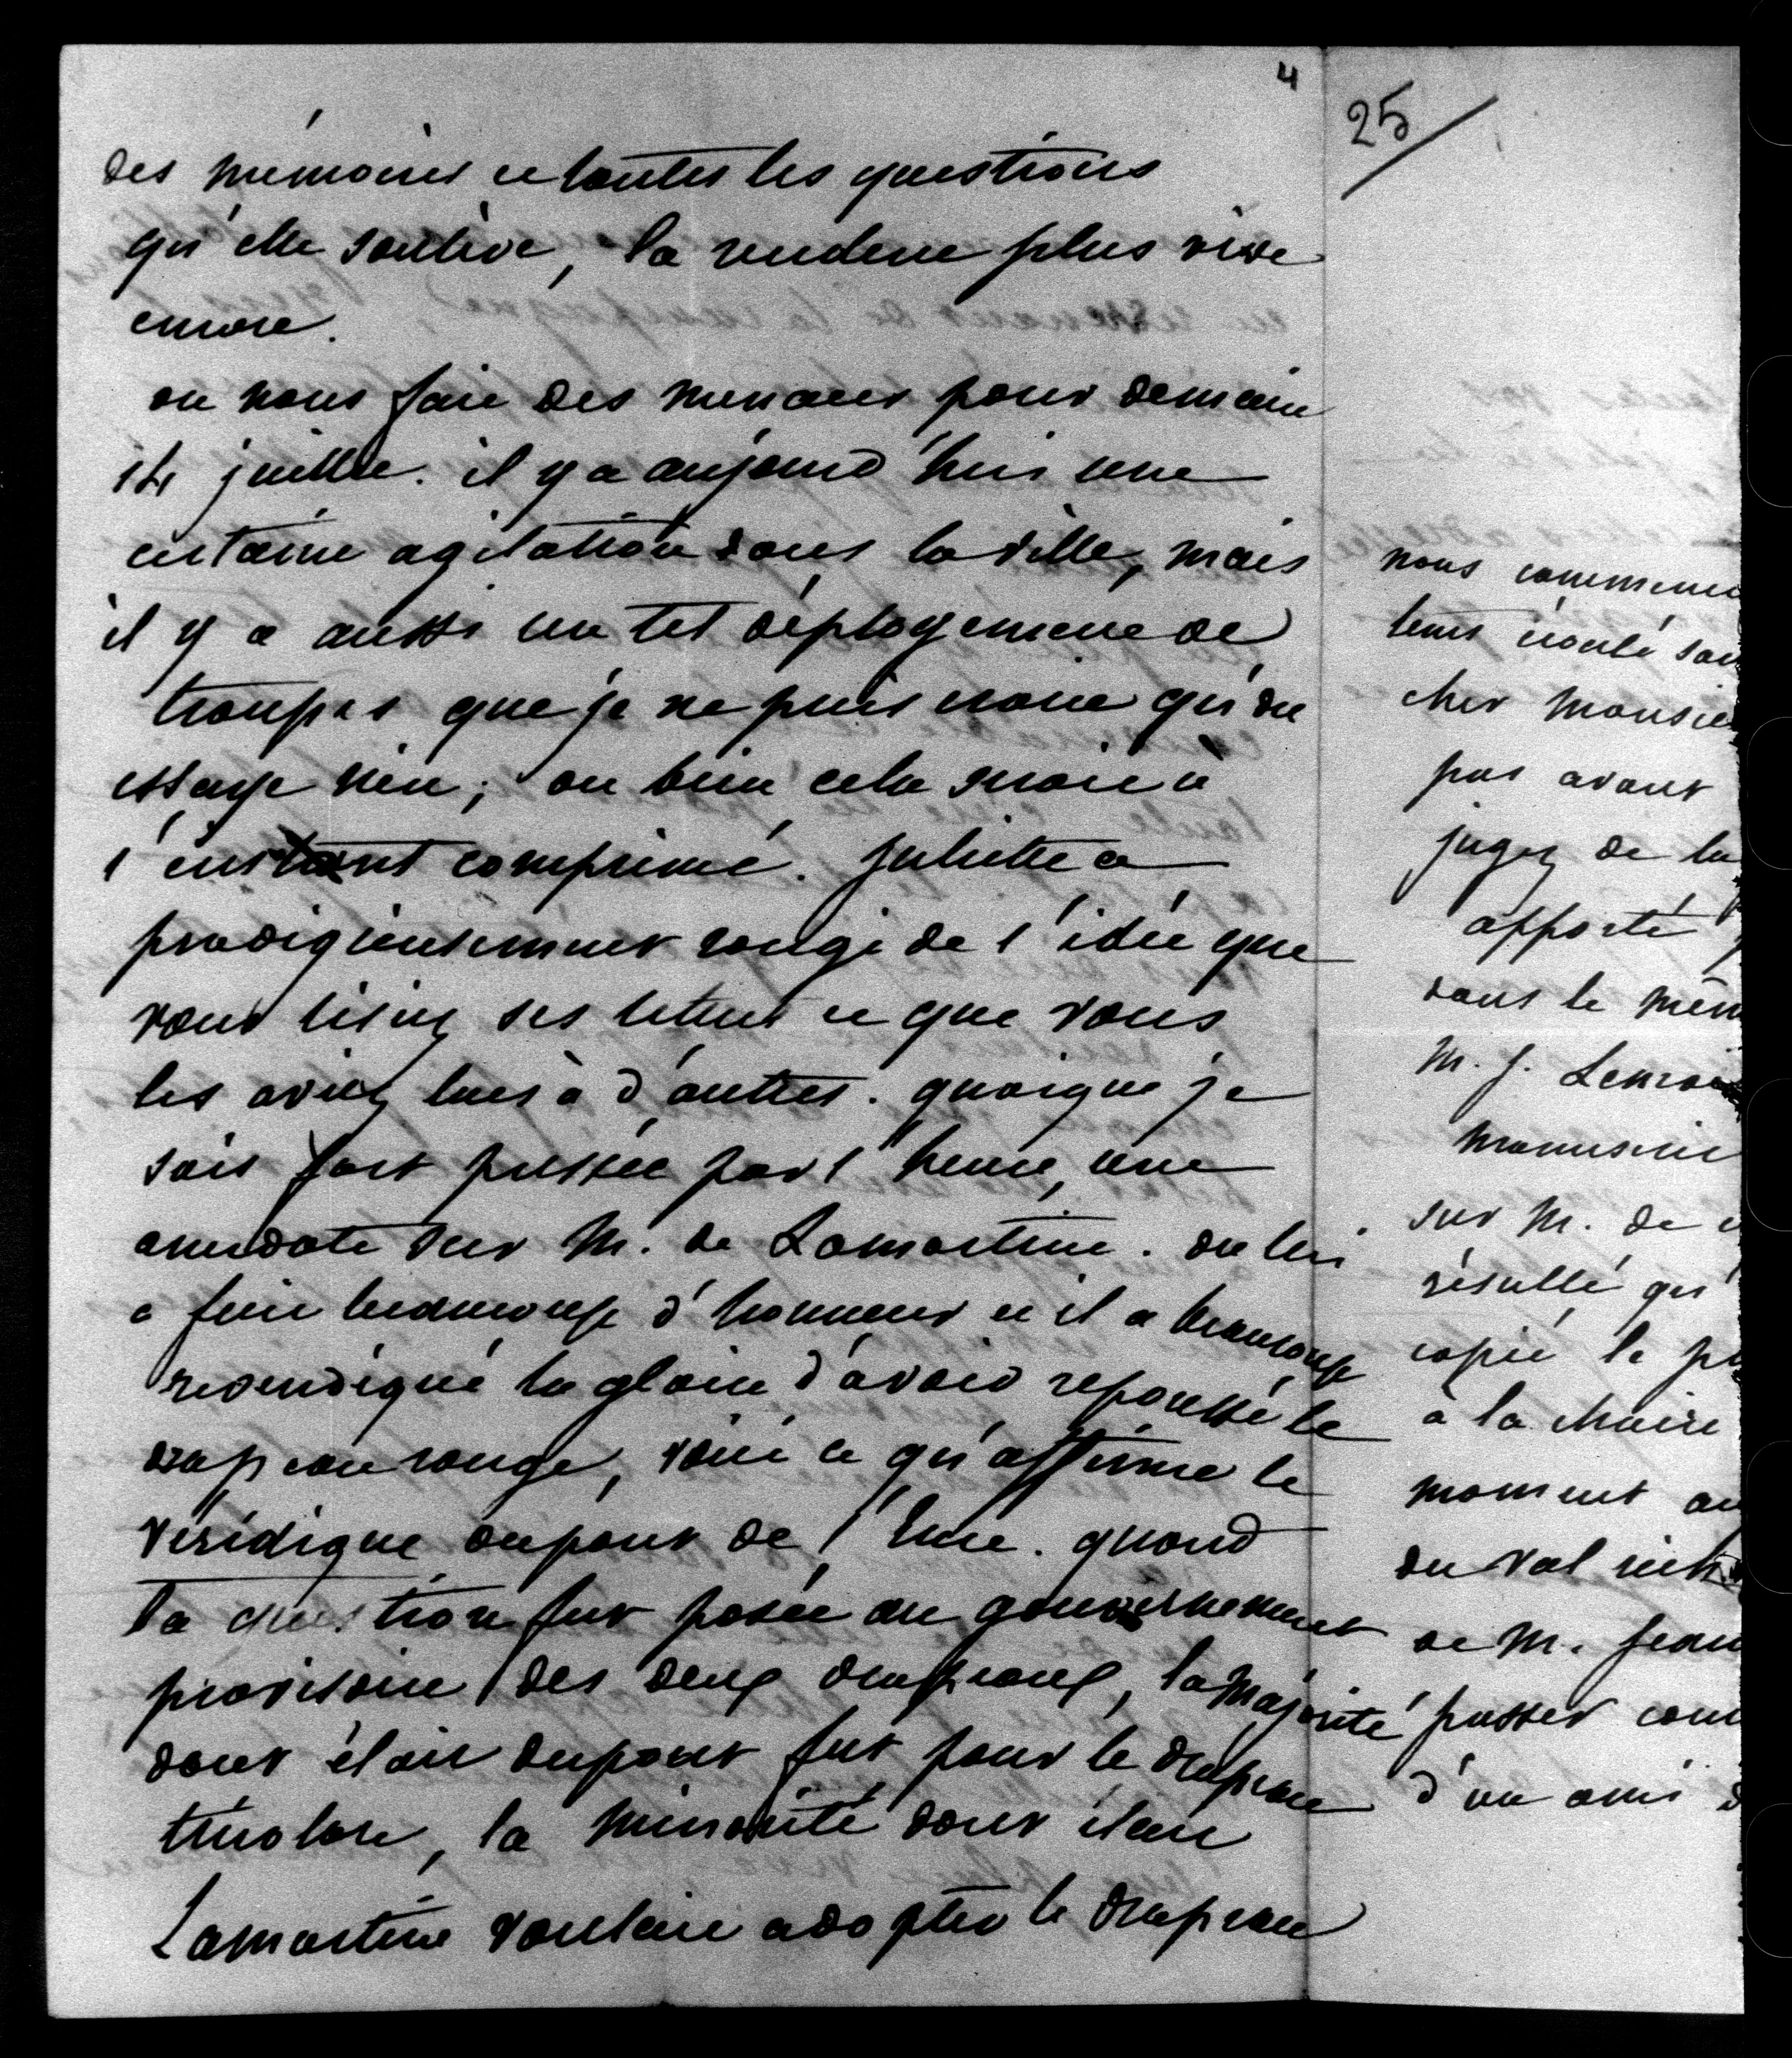 4
des mémoires et toutes les questions
qu'elle soulève, la rendent plus vive
encore.
on nous fait des menaces pour demain
14 juillet. il y a aujourd'hui une
certaine agitation dans la ville, mais
il y a aussi un tel déployement de
troupes que je ne puis croire qu'on
essaye rien; ou bien cela serait à
l'instant comprimé. Juliette a
prodigieusement rougi de l'idée que
vous lisiez ses lettres et que vous
les aviez lues à d'autres. quoique je
sois fort pressée par l'heure, une
anecdote sur M. de Lamartine. on lui
a fait beaucoup d'honneur et il a beaucoup
revendiqué la gloire d'avoir repoussé le
drapeau rouge, voici ce qu'affirme le
véridique dupont de l'Eure. quand
la question fut posée au gouvernement
provisoire des deux drapeaux, la majorité
dont était dupont fut pour le drapeau
tricolore, la minorité dont était
Lamartine voulait adopter le drapeau
25
nous commenc
tems écoulé san
cher Monsie
pas avant
jugez de la
apporté
dans le mêm
M. J. Lenor
manuscrit
sur M. de
résulté qu'
copié le p
à la chaire
moment au
du Val
de M. Jean
passer com
d'un ami d